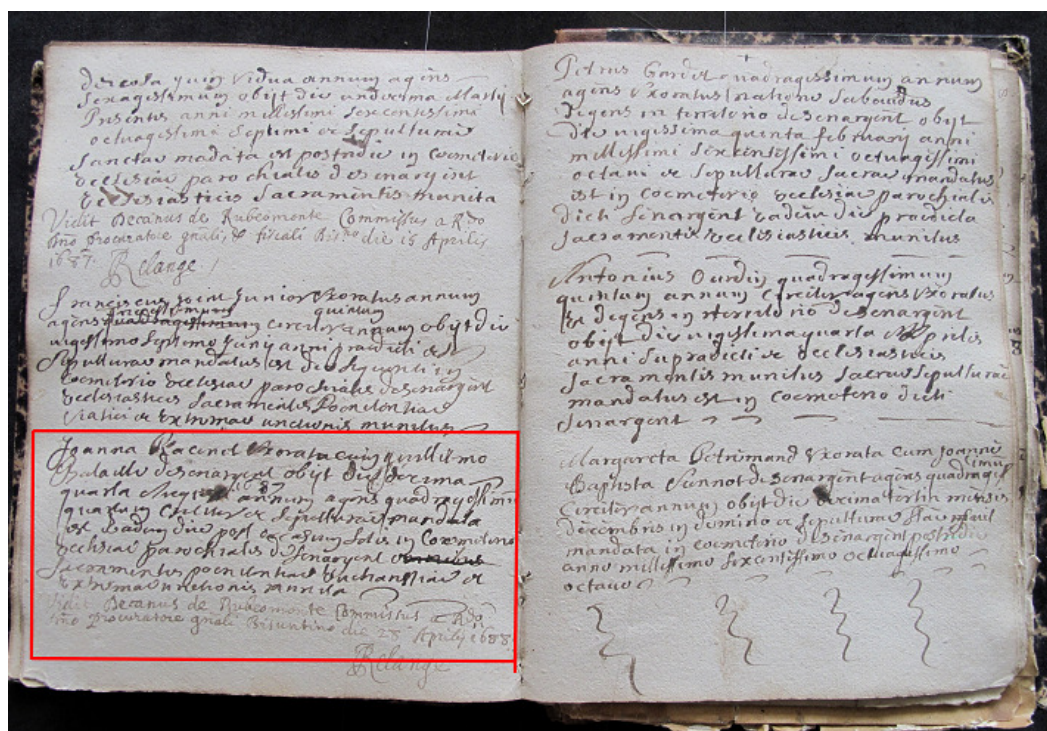 de cosa quin Vidua annum agens
sexagesimum obijt die undecima Martij
presentis anni millesimi sexcentesimi
octuagesimi septimi et sepulturae
sanctae madata est postridie in Coemeterio
ecclesiae parochialis desenargent
ecclesiasticis sacramentis munita
Vidit Decanus de Rubeomonte Commissus a Rdo
Dno procuratore gnali & fiscali Bis.no die 15 Aprilis
1687. Relange
franciscus Junior uxoratus annum
agens quintum
circiter annum obijt die
vigesimo septimo Junij anni praedicti et
sepulturae mandatus est die sequenti in
Coemeterio Ecclesiae parochialis desenargent
Ecclesiasticis sacramentis Poenitentiae
viatici et Extremae unctionis munitus
Joanna Racinel Uxorata cum guillelmo
desenargent obijt die decima
quarta Augusti 1687 annum agens quadragesimum
quartum Circiter et sepulturae mandata
est eadem die post occasum solis in Coemeterio
ecclesiae parochialis desenargent
sacramentis poenitentiae Eucharistiae et
Extremae unctionis munita
Vidit Decanus de Rubeomonte Commissus a Rdo
Dno procuratore gnali Bisuntino die 28 Aprilis 1688
Relange
Petrus Gardet quadragessimum annum
agens Uxoratus natione Sabaudus
degens in territorio desenargent obijt
die vigessima quinta februarij anni
millessimi sexcentessimi octuagessimi
octavi et sepulturae sacrae mandatus
est in coemeterio ecclesiae parochialis
dicti senargent eadem die praedicta
sacramentis ecclesiasticis munitus
Antonius Ourdin quadragessimum
quintum annum circiter agens Uxoratus
et degens in territorio desenargent
obijt die vigessima quarta Aprilis
anni supradicti et ecclesiasticis
sacramentis munitus sacrae sepulturae
mandatus est in coemeterio dicti
senargent
Margareta Petrimand Uxorata cum Joanne
Baptista Cunnot desenargent agens quadragesimum
circiter annum obijt die decima tertia mensis
decembris in domino et sepulturae fuit
mandata in coemeterio desenargent postridie
anno millessimo sexcentessimo octuagessimo
octavo